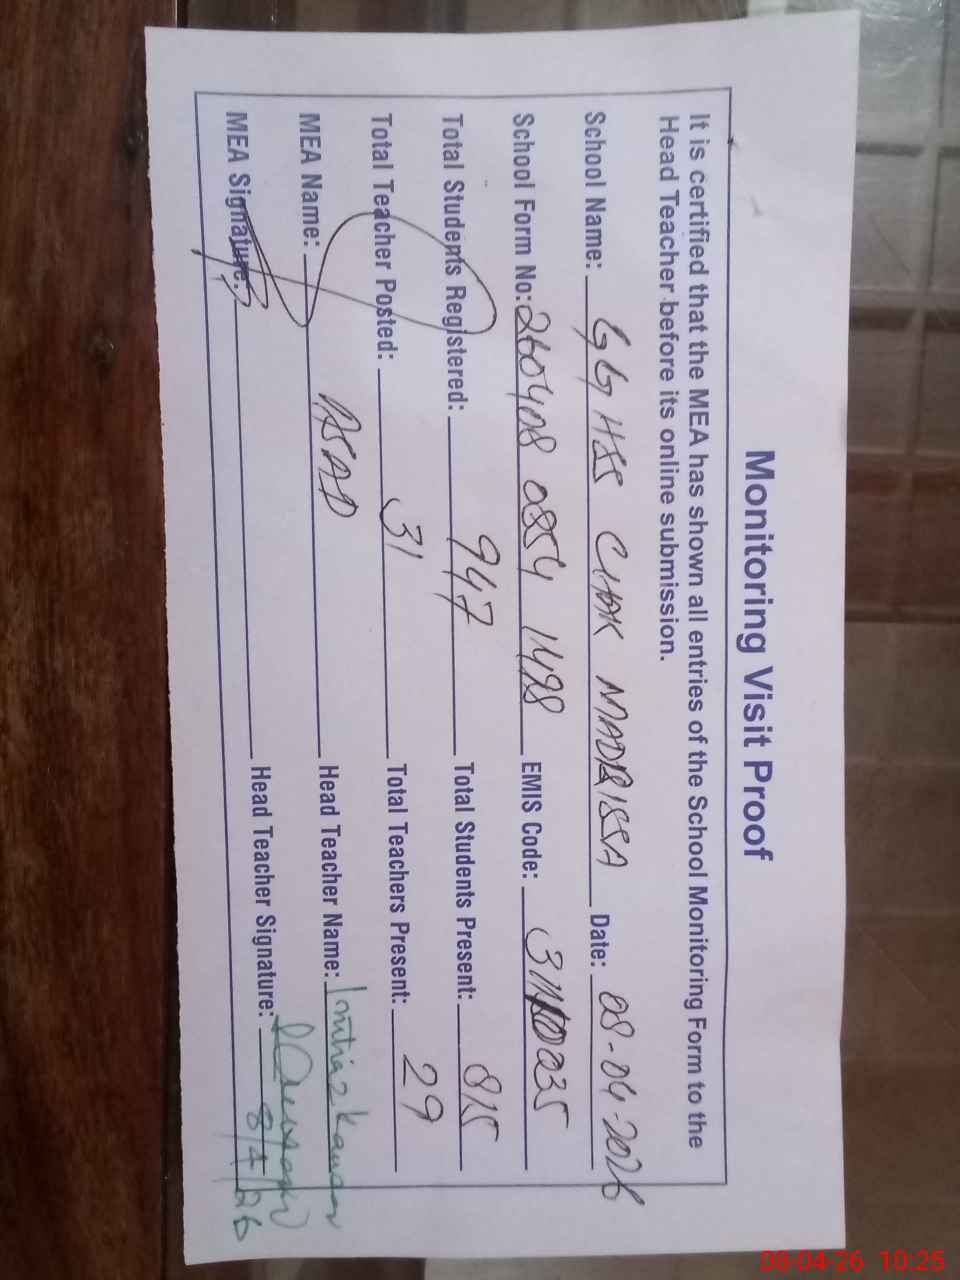 Monitoring Visit Proof
It is certified that the MEA has shown all entries of the School Monitoring Form to the
Head Teacher before its online submission.
School Name: GGHSS CHAK MADRISSA Date: 08-04-2026
School Form No: 260408 0854 1498 EMIS Code:
Total Students Registered: 947 Total Students Present: 815
Total Teacher Posted: 31 Total Teachers Present: 29
MEA Name: ASAD Head Teacher Name: Imtiaz Kausar
MEA Signature: Head Teacher Signature:
8/4/26
08-04-26 10:25